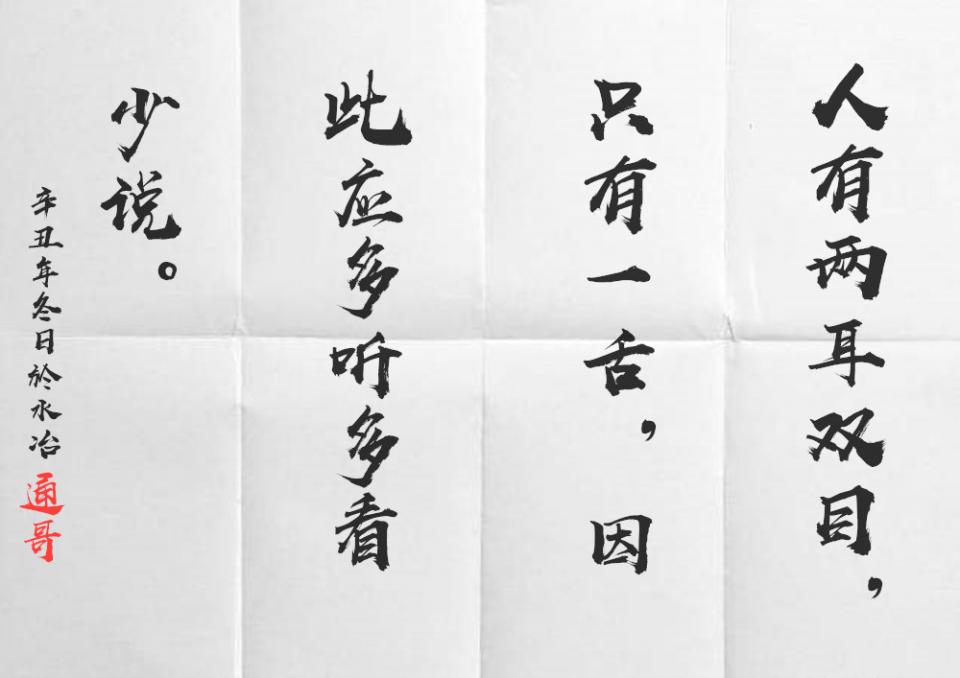 人有两耳双目，
只有一舌，因
此应多听多看
少说。
辛丑年冬日於永冶
通哥